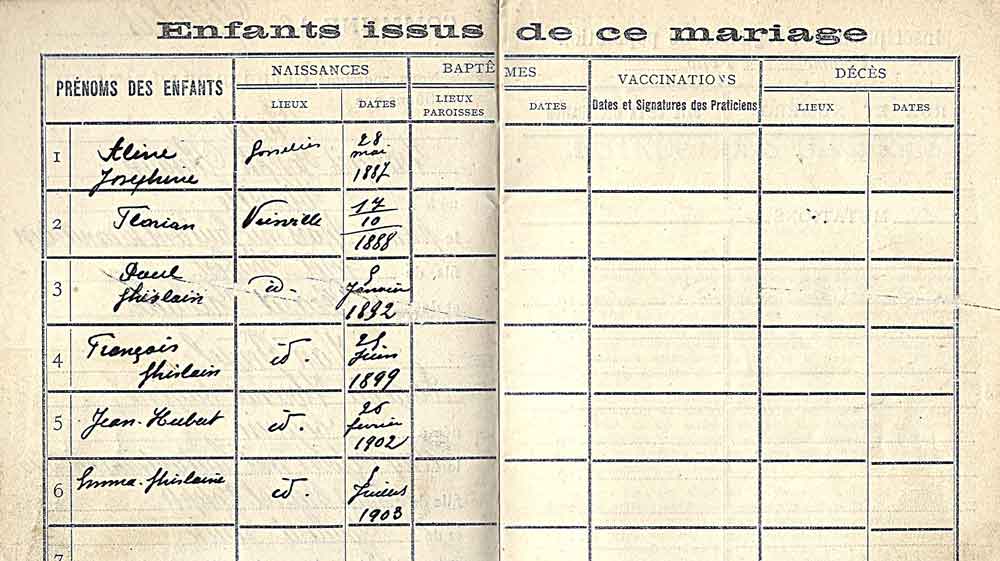 Enfants issus de ce mariage
PRÉNOMS DES ENFANTS
NAISSANCES
BAPTÊMES
VACCINATIONS
DÉCÈS
LIEUX
DATES
LIEUX
PAROISSES
DATES
Dates et Signatures des Praticiens
LIEUX
DATES
1
Aline
Joséphine
28
mai
1887
2
Florian
17
10
1888
3
Paul
Ghislain
id.
Janvier
1892
4
François
Ghislain
id.
Juin
1899
5
Jean-Hubert
id.
26
février
1902
6
Emma-Ghislaine
id.
1903
7